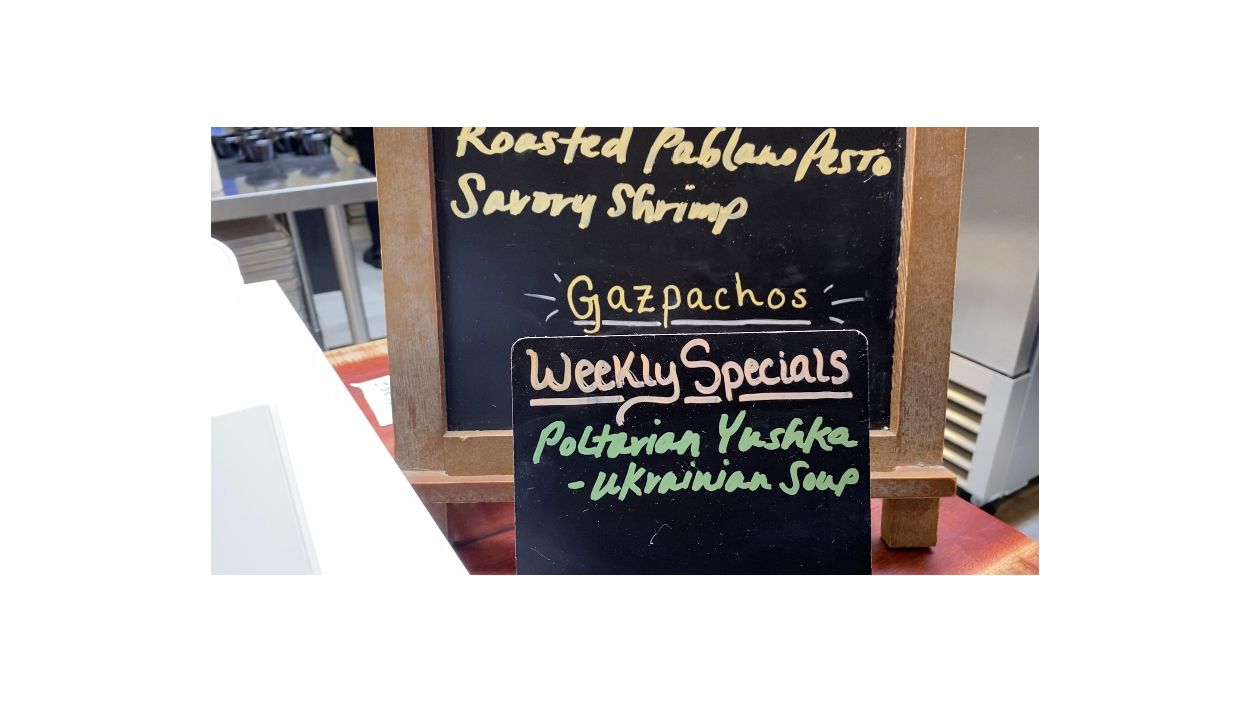 Roasted Pablano Pesto
Savory Shrimp
Gazpachos
Weekly Specials
Poltavian Yushka
-Ukrainian Soup